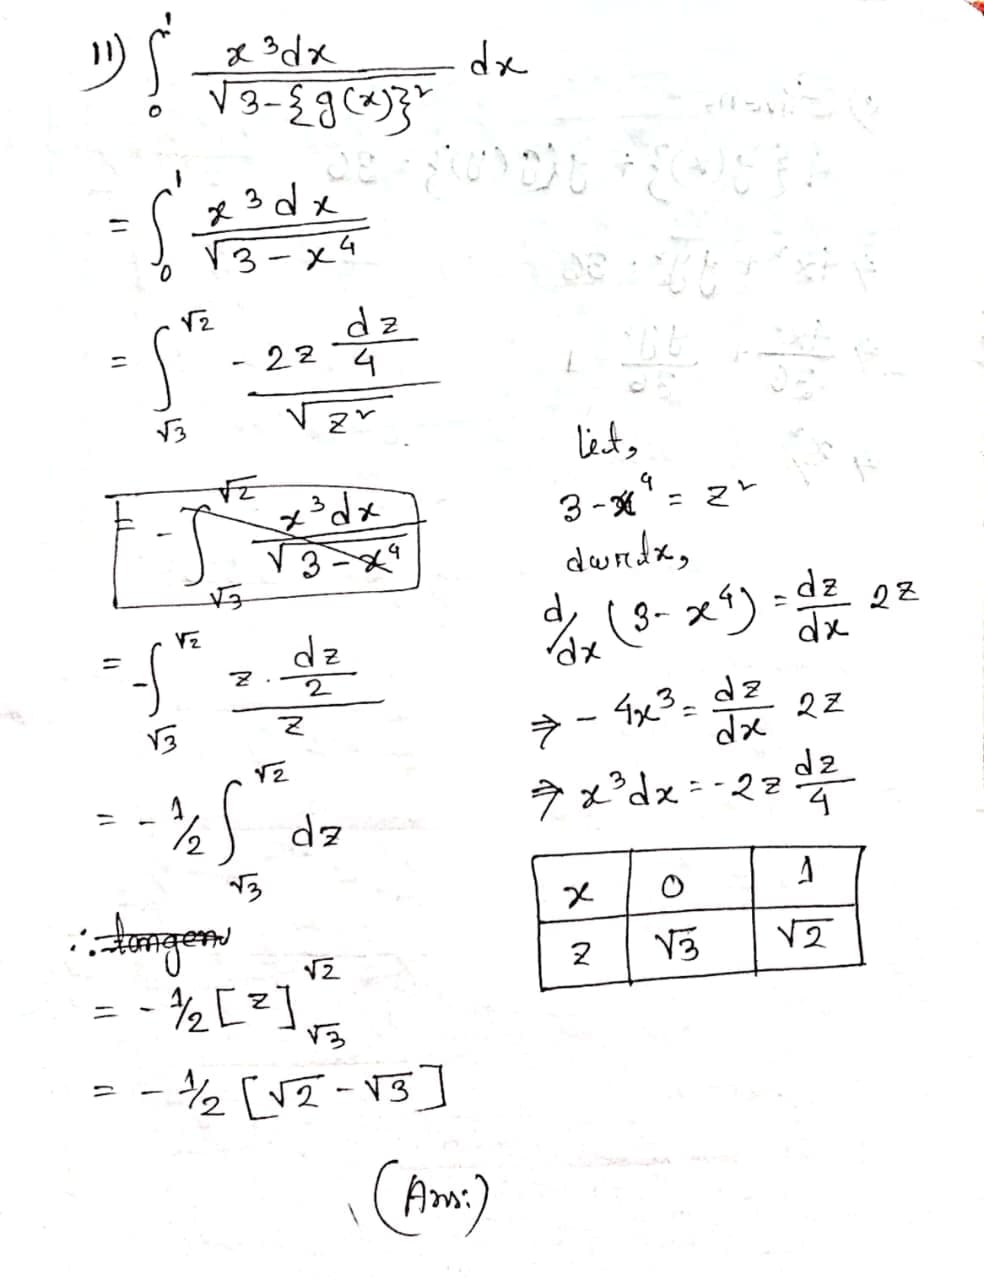 11) ∫₀¹ x³dx / √3-{g(x)}² dx
= ∫₀¹ x³dx / √3-x⁴
= ∫_√3^√2 -2z dz/4 / √z²
= - ∫_√3^√2 x³dx / √3-x⁴
= -∫_√3^√2 z. dz/2 / z
= -1/2 ∫_√3^√2 dz
= -1/2 [z]_√3^√2
= -1/2 [√2-√3]
(Ans:)
Let,
3-x⁴ = z²
dwrdx,
d/dx (3-x⁴) = dz/dx 2z
⇒ -4x³ = dz/dx 2z
⇒ x³dx = -2z dz/4
x 0 1
z √3 √2